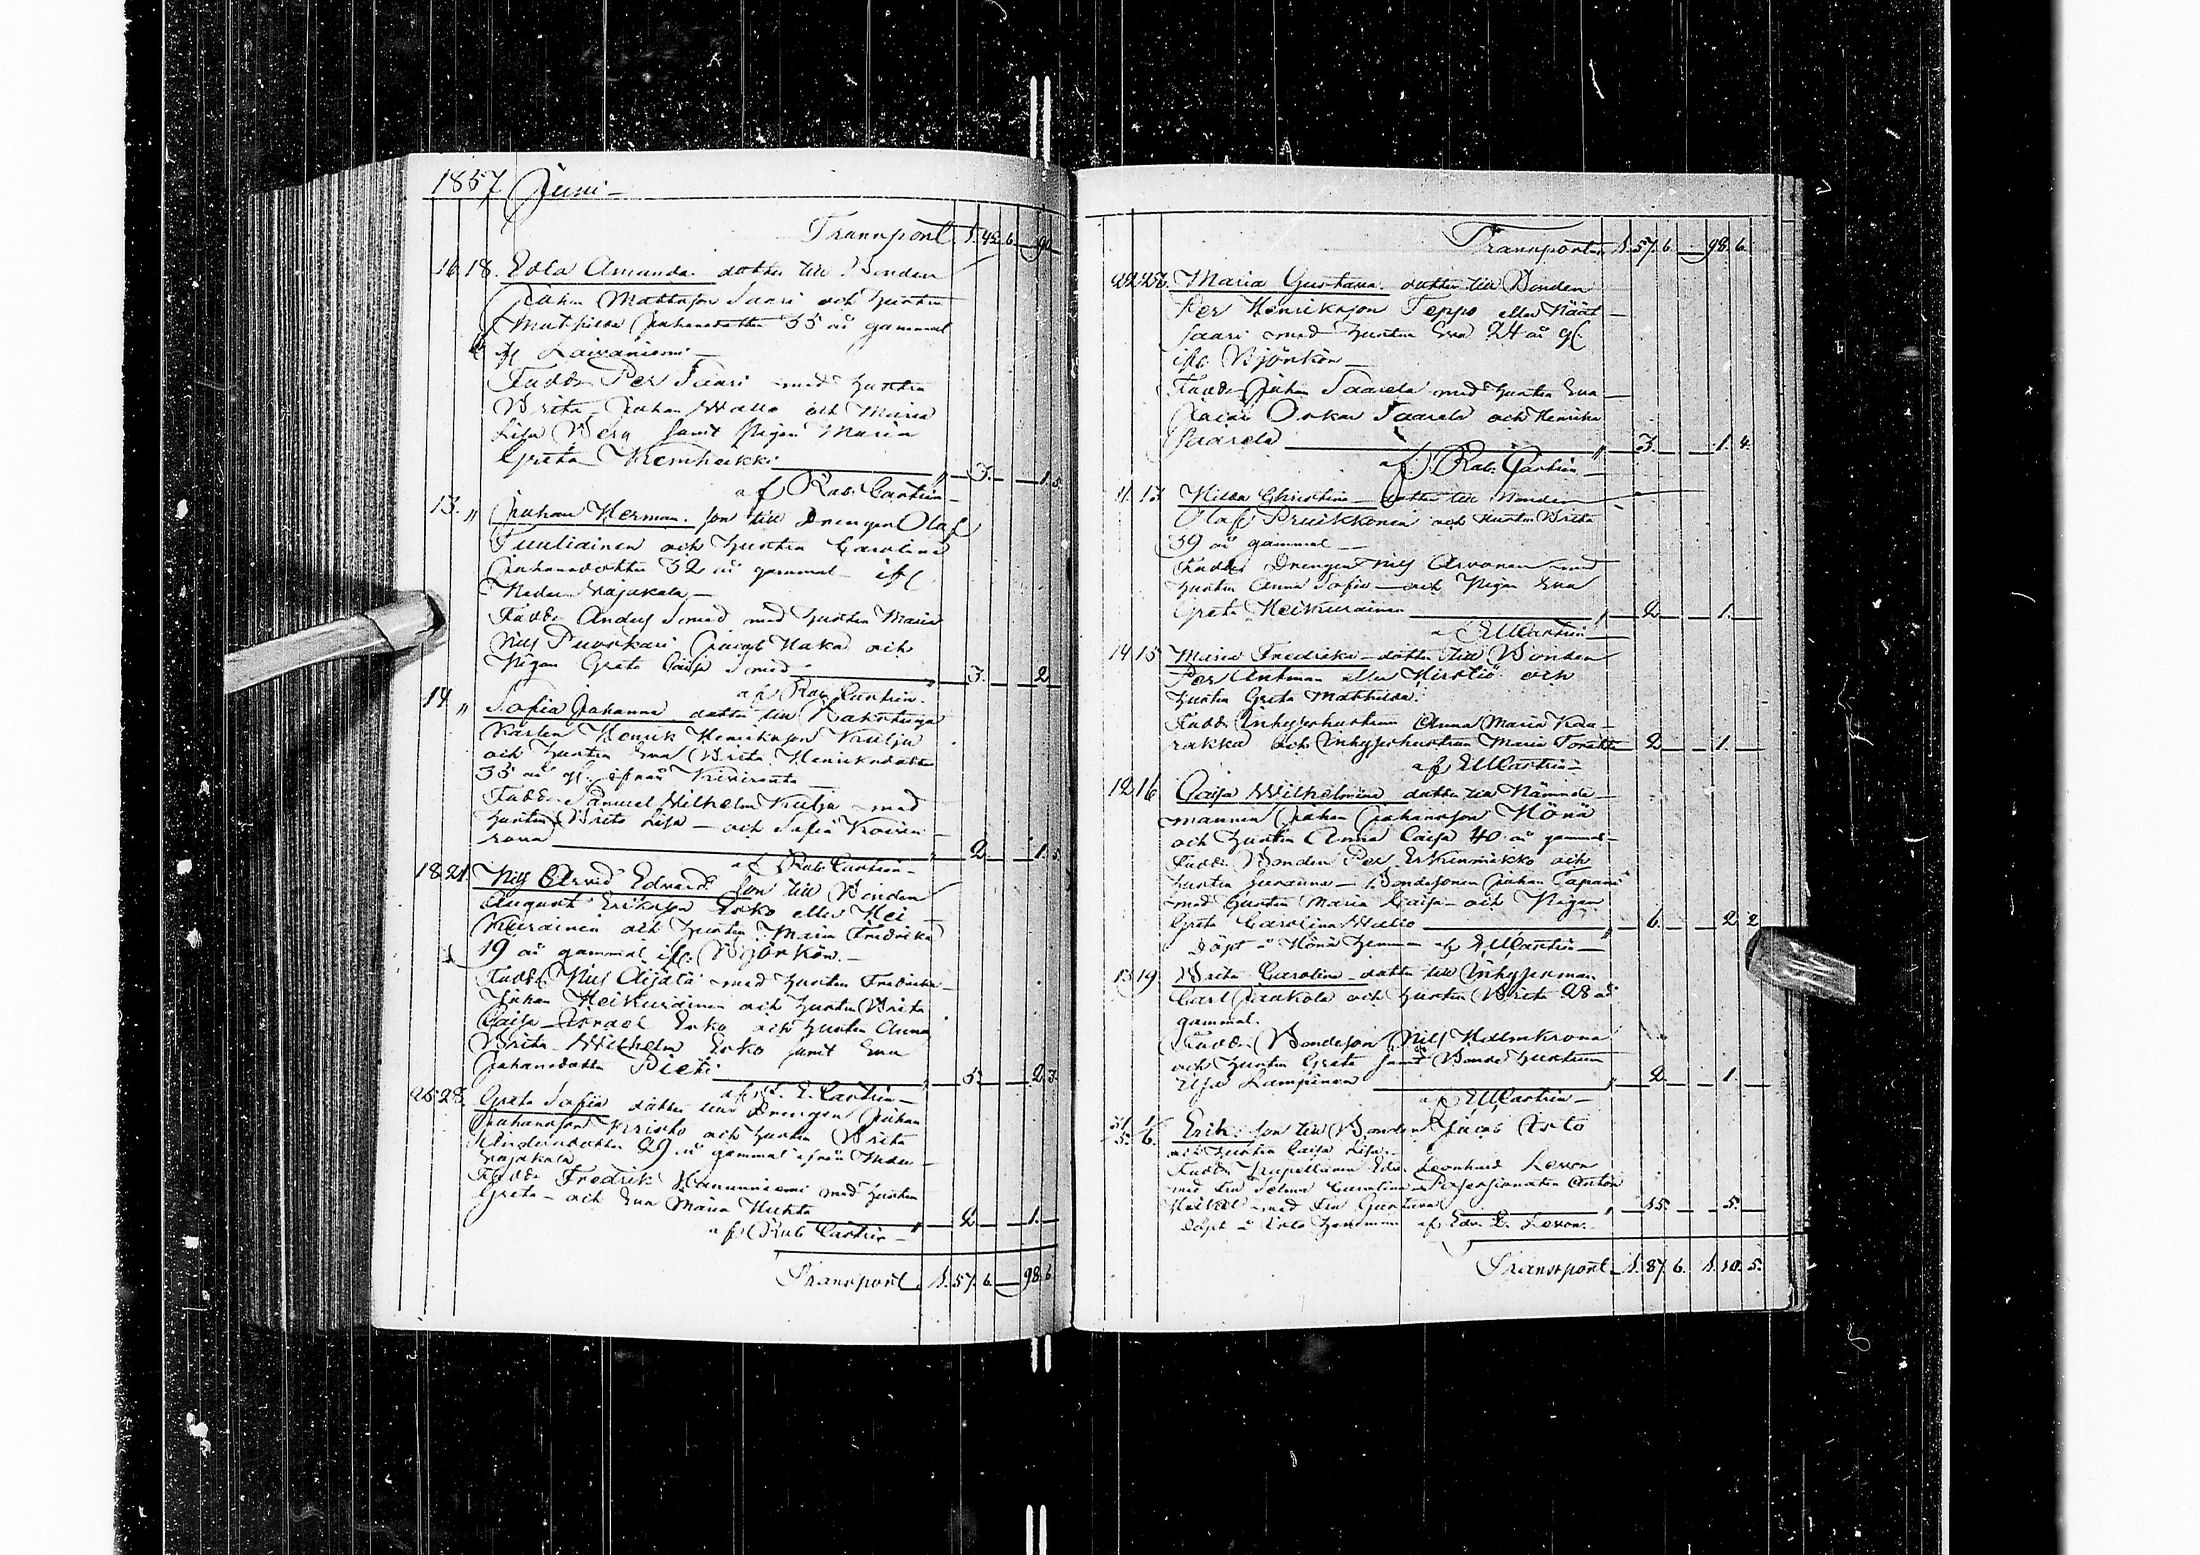 1857 Juni
Transport 1. 42. 6. 90
16. 18. Edla Amanda dotter till Bonden
Johan Mattsson Saari och hustru
Mathilda Johansdotter 35 år gammal
ifr Laivaniemi
Fadd. Per Saari med hustru
Brita, Johan och Maria
Lisa Berg samt pigan Maria
Greta 3. 1. 5
af Rab. Castrén
13. " Johan Herman son till Drengen Olof
Tuuliainen och hustru Carolina
Johansdotter 32 år gammal ifr
Neder
Fadd. Anders Smed med hustru Maria
Nils Jacob Haka och
Pigan Greta Caisa Smed 3. 2
af Rab. Castrén
14 " Sofia Johanna dotter till
Henrik Henriksson Kulju
och hustru Eva Brita Henriksdotter
35 år gl. ifrån Kiviranta
Fadd. Samuel Wilhelm Kulju med
hustru Brita Lisa och Sofia
2. 1. 5
af Rab. Castrén
18. 21. Nils Arvid Edvard son till Bonden
August Eriksson Erko eller Hei
kurainen och hustru Maria Fredrika
19 år gammal ifr. Björkön
Fadd. Nils Äijälä med hustru Fredrika
Johan Heikurainen och hustru Brita
Caisa Israel Erko och hustru Anna
Brita Wilhelm Erko samt Eva
Johansdotter 5. 2 3
af E. Castrén
25. 28. Greta Sofia dotter till Drengen Johan
Johansson och hustru Brita
29 år gammal ifrån Neder
Fadd. Fredrik med hustru
Greta och Eva Maria Huhta
2. 1.
af Rab. Castrén
Transport 1. 57. 6. 98. 6
Transport 1. 57. 6 98. 6
22. 25. Maria Gustava dotter till Bonden
Per Henriksson Teppo eller Näät
saari med hustru Eva 24 år gl.
ifr Björkön
Fadd. Johan Saarela med hustru Eva
Oskar Saarela och Henrika
Saarela 3. 1. 4.
af Rab. Castrén
11. 13. Hilda Christina dotter till Bonden
Olof Pruikkonen och hustru Brita
39 år gammal
Fadd. Drengen Nils Arvonen med
hustru Anna Sofia och Pigan Eva
Greta Heikurainen 2 1.
af E M Castrén
14 15 Maria Fredrika dotter till Bonden
Per Antman eller Hirstiö och
hustru Greta Mathilda
Fadd. Inhyseshustrun Anna Maria Kaa
rakka och Inhyseshustrun Maria 2 1.
af E M Castrén
12 16 Caisa Wilhelmina dotter till Nämnde
mannen Johan Johansson Hönä
och hustru Anna Caisa 40 år gammal
Fadd. Bonden Per Erkinmikko och
hustru Susanna Bondesonen Johan Tapani
med hustru Maria Caisa och Pigan
Greta Carolina 6. 2 2
Döpt å Hönä hemman af E M Castrén
15 19 Brita Carolina dotter till Inhysesman
Carl Jaakola och hustru Brita 28 år
gammal.
Fadd. Bondeson Nils Malmkrona
och hustru Greta samt Bonde hustrun
Ulja Lampinen 2. 1.
af E M Castrén
31/5 1/6 Erik son till Bonden Jacob Arto
och hustru Caisa Lisa
Fadd. Kapellanen Edv. Leonhard Lexon
med Fru Selma Carolina Possessionaten Anton
Heikel med Fru Gustava 15. 5.
Döpt å Arto hemman af Edv. L. Lexon.
Transport 1. 87. 6. 1. 10. 5.